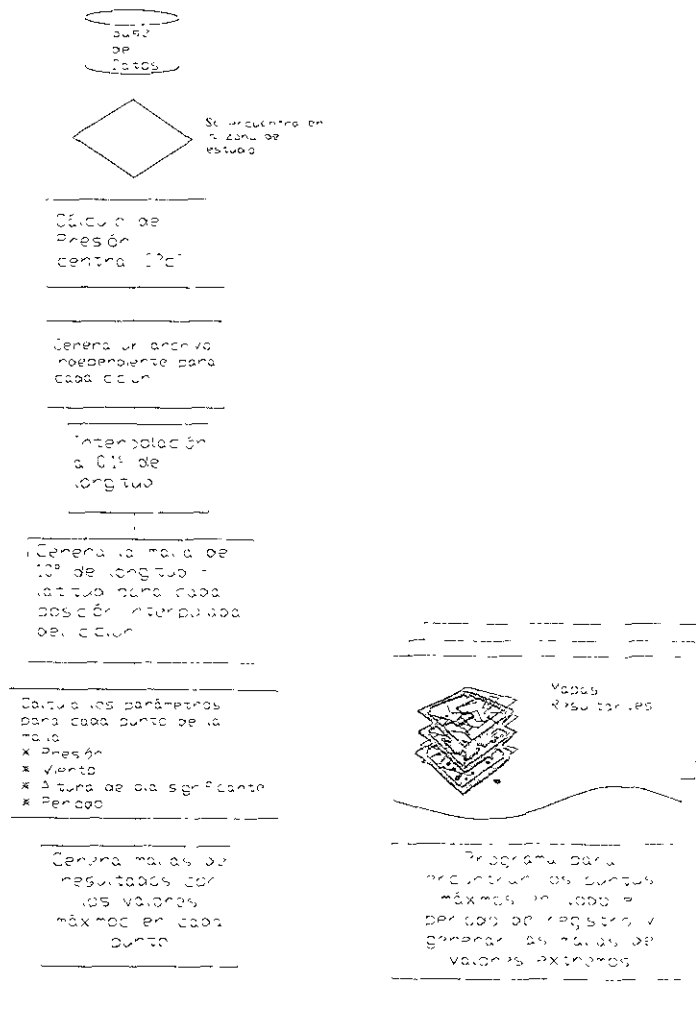 Base
de
Datos
Se encuentra en
la zona de
estudio
Cálculo de
Presión
central "Pc"
Genera un archivo
independiente para
cada ciclón
Interpolación
a 0.1° de
longitud
Genera la malla de
10° de longitud y
latitud para cada
posición interpolada
del ciclón
Calcula los parámetros
para cada punto de la
malla
* Presión
* Viento
* Altura de ola significante
* Periodo
Genera mallas de
resultados con
los valores
máximos en cada
punto
Mapas
Resultantes
Programa para
encontrar los puntos
máximos en todo el
periodo de registro y
generar las mallas de
valores extremos